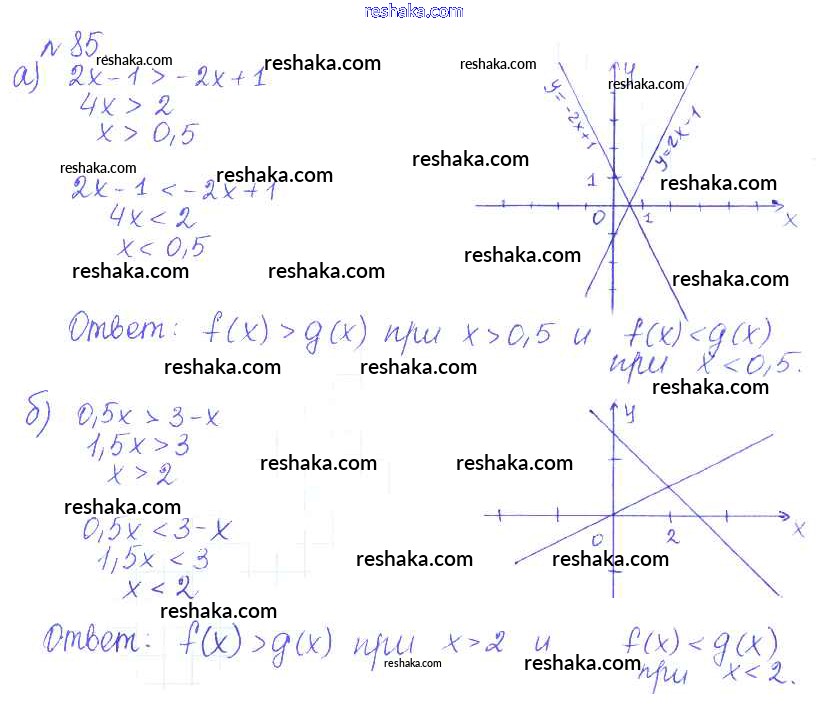 reshaka.com
№ 85
reshaka.com reshaka.com reshaka.com reshaka.com
а) 2x - 1 > -2x + 1
4x > 2
x > 0,5
reshaka.com reshaka.com reshaka.com reshaka.com
2x - 1 < -2x + 1
4x < 2
x < 0,5
reshaka.com reshaka.com reshaka.com reshaka.com
y
y = -2x+1
y = 2x-1
1
0 1 x
Ответ: f(x) > g(x) при x > 0,5 и f(x) < g(x)
при x < 0,5.
reshaka.com reshaka.com reshaka.com
б) 0,5x > 3 - x
1,5x > 3
x > 2
reshaka.com reshaka.com reshaka.com
0,5x < 3 - x
1,5x < 3
x < 2
reshaka.com reshaka.com reshaka.com
y
0 2 x
Ответ: f(x) > g(x) при x > 2 и f(x) < g(x)
при x < 2.
reshaka.com reshaka.com